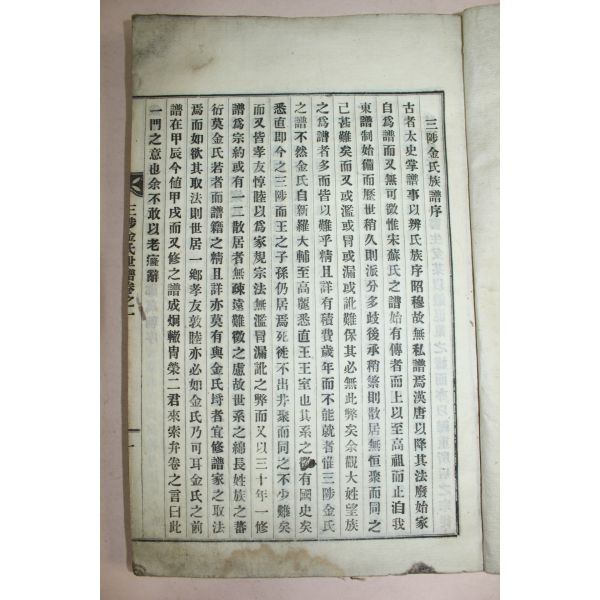 三陟金氏族譜序
古者太史掌譜事以辨氏族序昭穆故無私譜焉漢唐以降其法廢始家
自爲譜而又無可徵惟宋蘇氏之譜始有傳者而上以至高祖而止自我
東譜制始備而歷世稍久則派分多歧後承稍繁則散居無恒聚而同之
已甚難矣而又或濫或冒或漏或訛難保其必無此弊矣余觀大姓望族
之爲譜者多而以難乎精且詳有積費歲年而不能就者惟三陟金氏
之譜不然金氏自新羅大輔至高麗悉直王王室也其系之 有國史矣
悉直即今之三陟而王之子孫仍居焉死徙不出井聚而同之不少難矣
而又皆孝友惇睦以爲家規宗法無濫冒漏訛之弊而又以三十年一修
譜爲宗約或有一二散居者無疎遠難徵之慮故世系之綿長姓族之蕃
衍莫金氏若者而譜籍之精且詳亦莫有與金氏埒者宜修譜家之取法
焉而如欲其取法則世居一鄉孝友敦睦亦必如金氏乃可耳金氏之前
譜在甲辰今値甲戌而又修之譜成炯轍胄榮二君來索弁卷之言曰此
一門之意也余不敢以老 辭
三陟金氏世譜卷之一
一